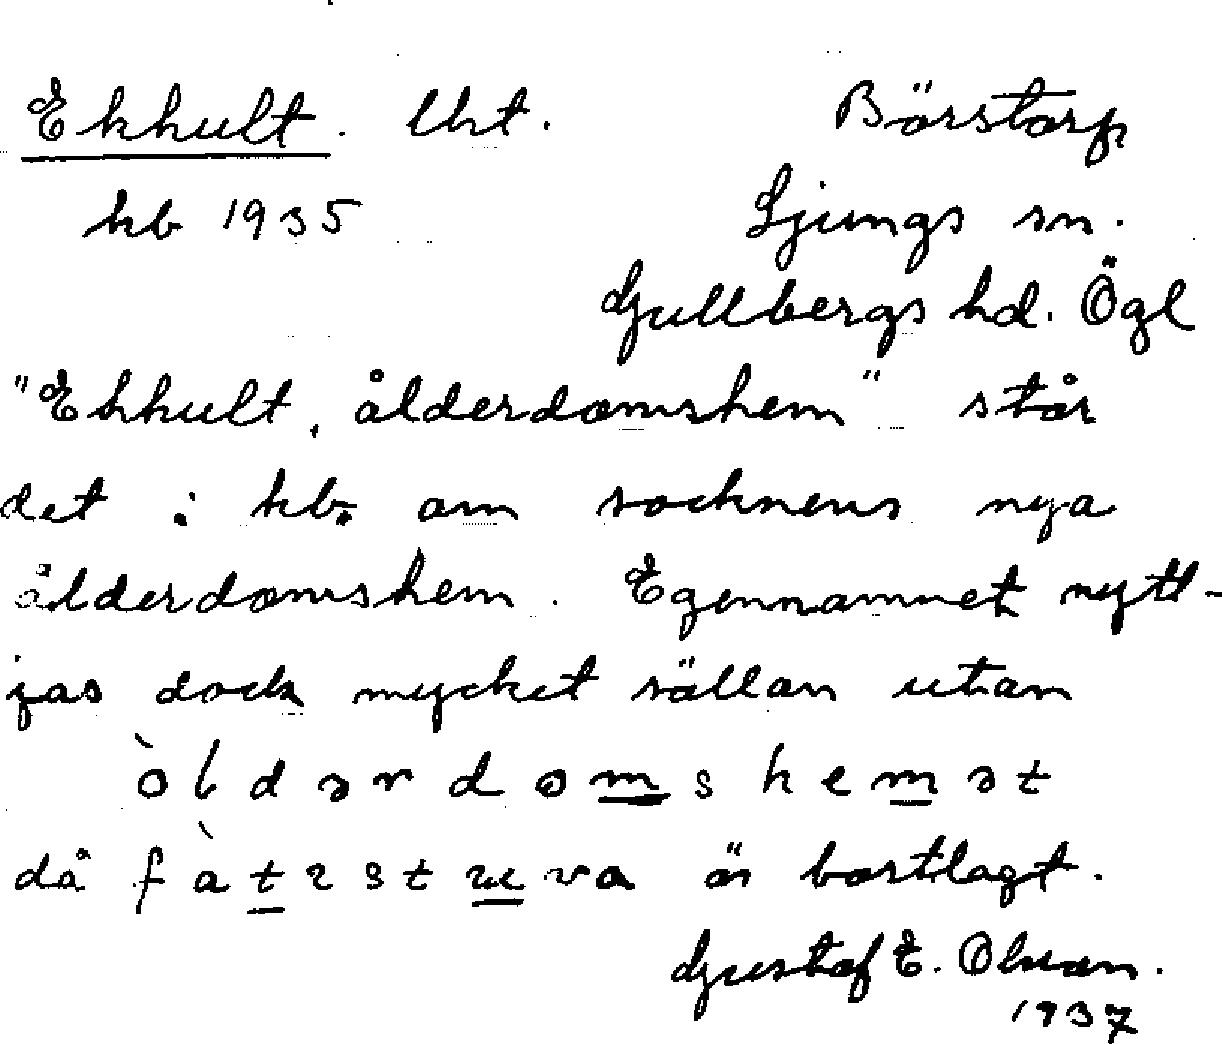 Ekhult. lht. Börstorp
kb 1935 Ljungs sn.
Gullbergs hd. Ögl
"Ekhult, ålderdomshem" står
det i kb. om socknens nya
ålderdomshem. Egennamnet nytt-
jas dock mycket sällan utan
òldərdomshemət
då fàtɩstuva är bortlagt.
Gustaf E. Olson.
1937